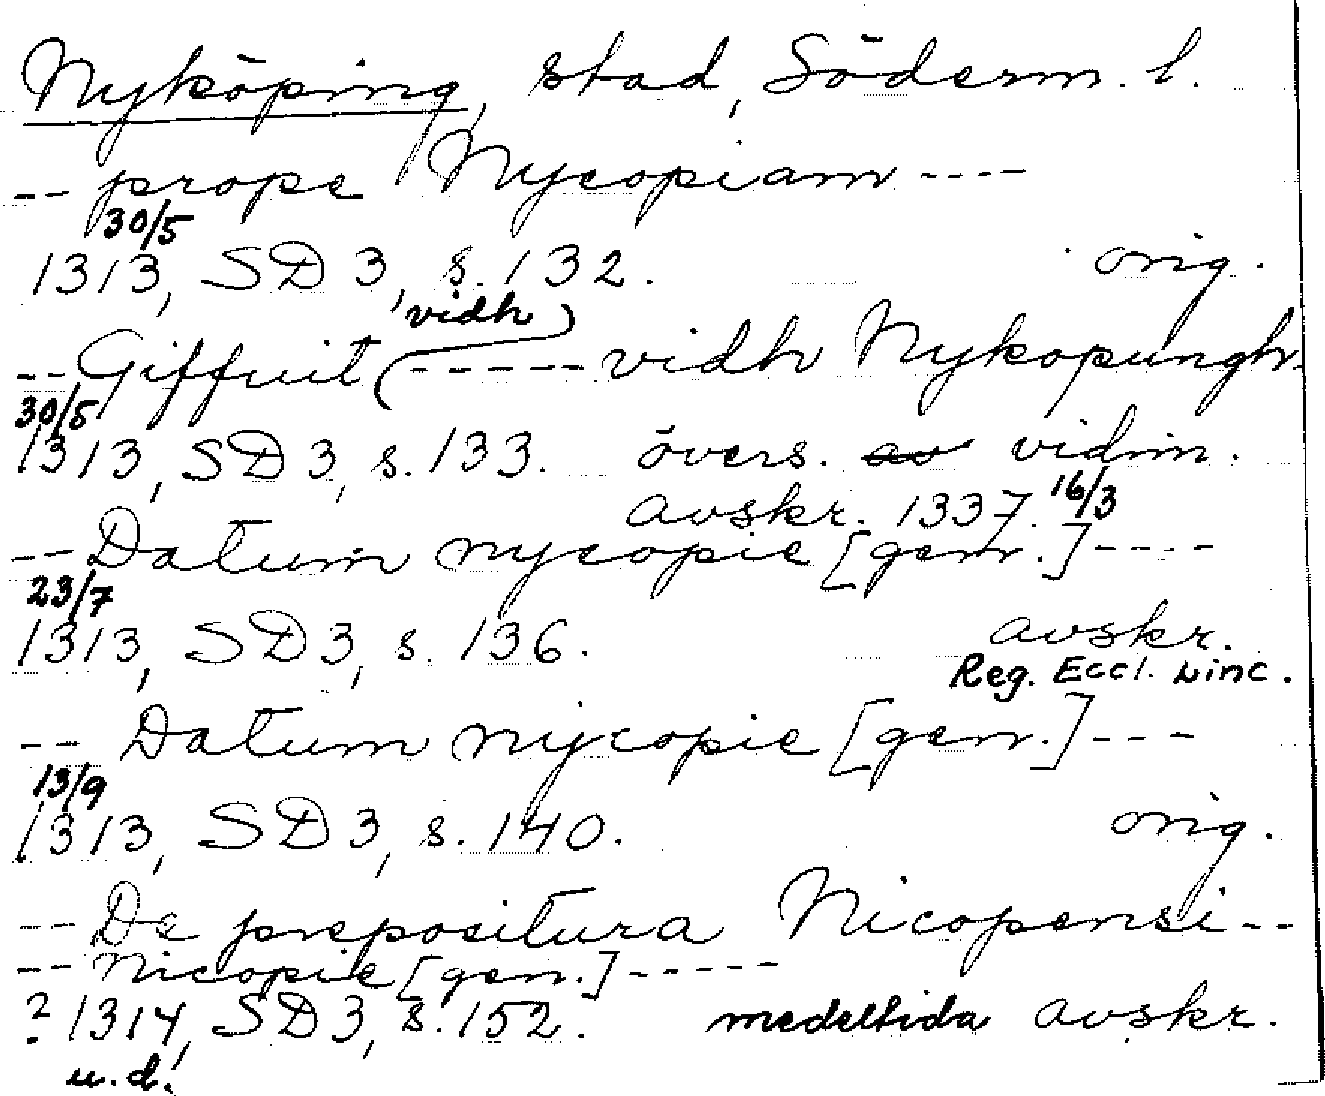 Nyköping, stad, Söderm. l.
-- prope Nycopiam ----
30/5
1313, SD 3, s. 132. orig.
vidh
-- Giffuit (----- vidh Nykopungh
30/5
1313, SD 3, s. 133. övers. av vidim.
avskr. 1337. 16/3
-- Datum nycopie [gen.] ----
23/7
1313, SD 3, s. 136. avskr.
Reg. Eccl. Linc.
-- Datum nycopie [gen.] ---
13/9
1313, SD 3, s. 140. orig.
-- De prepositura Nicopensi --
-- Nicopie [gen.] -----
? 1314, SD 3, s. 152. medeltida avskr.
u. d.